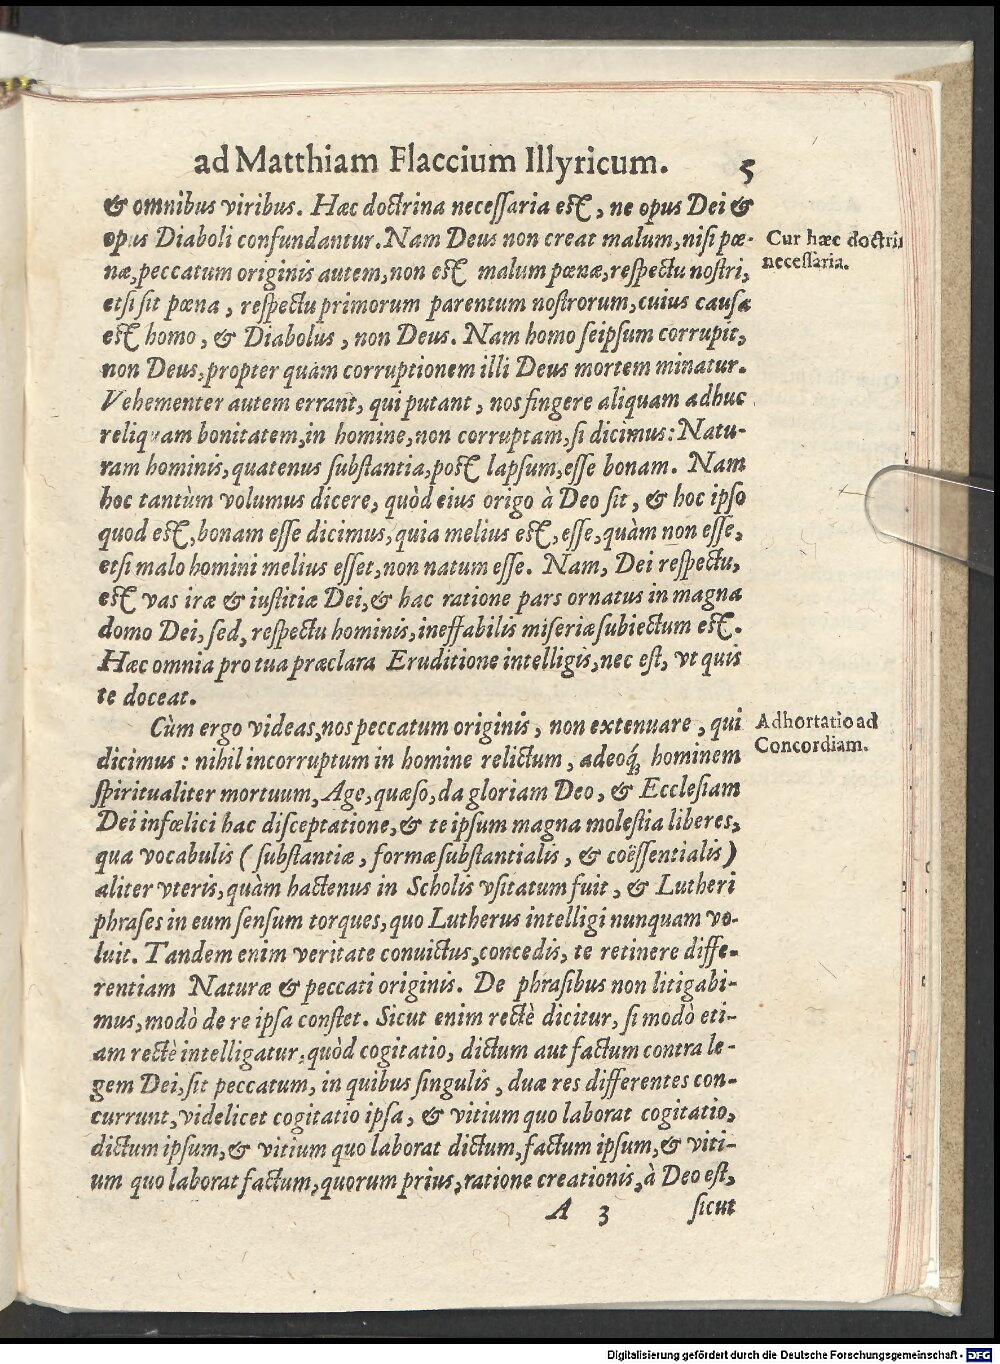 ad Matthiam Flaccium Illyricum. 5
& omnibus viribus. Hæc doctrina necessaria est, ne opus Dei &
opus Diaboli confundantur. Nam Deus non creat malum, nisi pœ-
Cur hæc doctrin
necessaria.
næ, peccatum originis autem, non est malum pœnæ, respectu nostri,
etsi sit pœna, respectu primorum parentum nostrorum, cuius causa
est homo, & Diabolus, non Deus. Nam homo seipsum corrupit,
non Deus, propter quàm corruptionem illi Deus mortem minatur.
Vehementer autem errant, qui putant, nos fingere aliquam adhuc
reliquam bonitatem, in homine, non corruptam, si dicimus: Natu-
ram hominis, quatenus substantia, post lapsum, esse bonam. Nam
hoc tantùm volumus dicere, quòd eius origo à Deo sit, & hoc ipso
quod est, bonam esse dicimus, quia melius est, esse, quàm non esse,
etsi malo homini melius esset, non natum esse. Nam, Dei respectu,
est vas iræ & iustitiæ Dei, & hac ratione pars ornatus in magna
domo Dei, sed, respectu hominis, ineffabilis miseriæ subiectum est.
Hæc omnia pro tua præclara Eruditione intelligis, nec est, vt quis
te doceat.
Cùm ergo videas, nos peccatum originis, non extenuare, qui
Adhortatio ad
Concordiam.
dicimus: nihil incorruptum in homine relictum, adeoq́; hominem
spiritualiter mortuum, Age, quæso, da gloriam Deo, & Ecclesiam
Dei infœlici hac disceptatione, & te ipsum magna molestia liberes,
qua vocabulis (substantiæ, formæ substantialis, & coëssentialis)
aliter vteris, quàm hactenus in Scholis vsitatum fuit, & Lutheri
phrases in eum sensum torques, quo Lutherus intelligi nunquam vo-
luit. Tandem enim veritate conuictus, concedis, te retinere diffe-
rentiam Naturæ & peccati originis. De phrasibus non litigabi-
mus, modò de re ipsa constet. Sicut enim rectè dicitur, si modò eti-
am rectè intelligatur, quòd cogitatio, dictum aut factum contra le-
gem Dei, sit peccatum, in quibus singulis, duæ res differentes con-
currunt, videlicet cogitatio ipsa, & vitium quo laborat cogitatio,
dictum ipsum, & vitium quo laborat dictum, factum ipsum, & viti-
um quo laborat factum, quorum prius, ratione creationis, à Deo est,
A 3 sicut
Digitalisierung gefördert durch die Deutsche Forschungsgemeinschaft - DFG